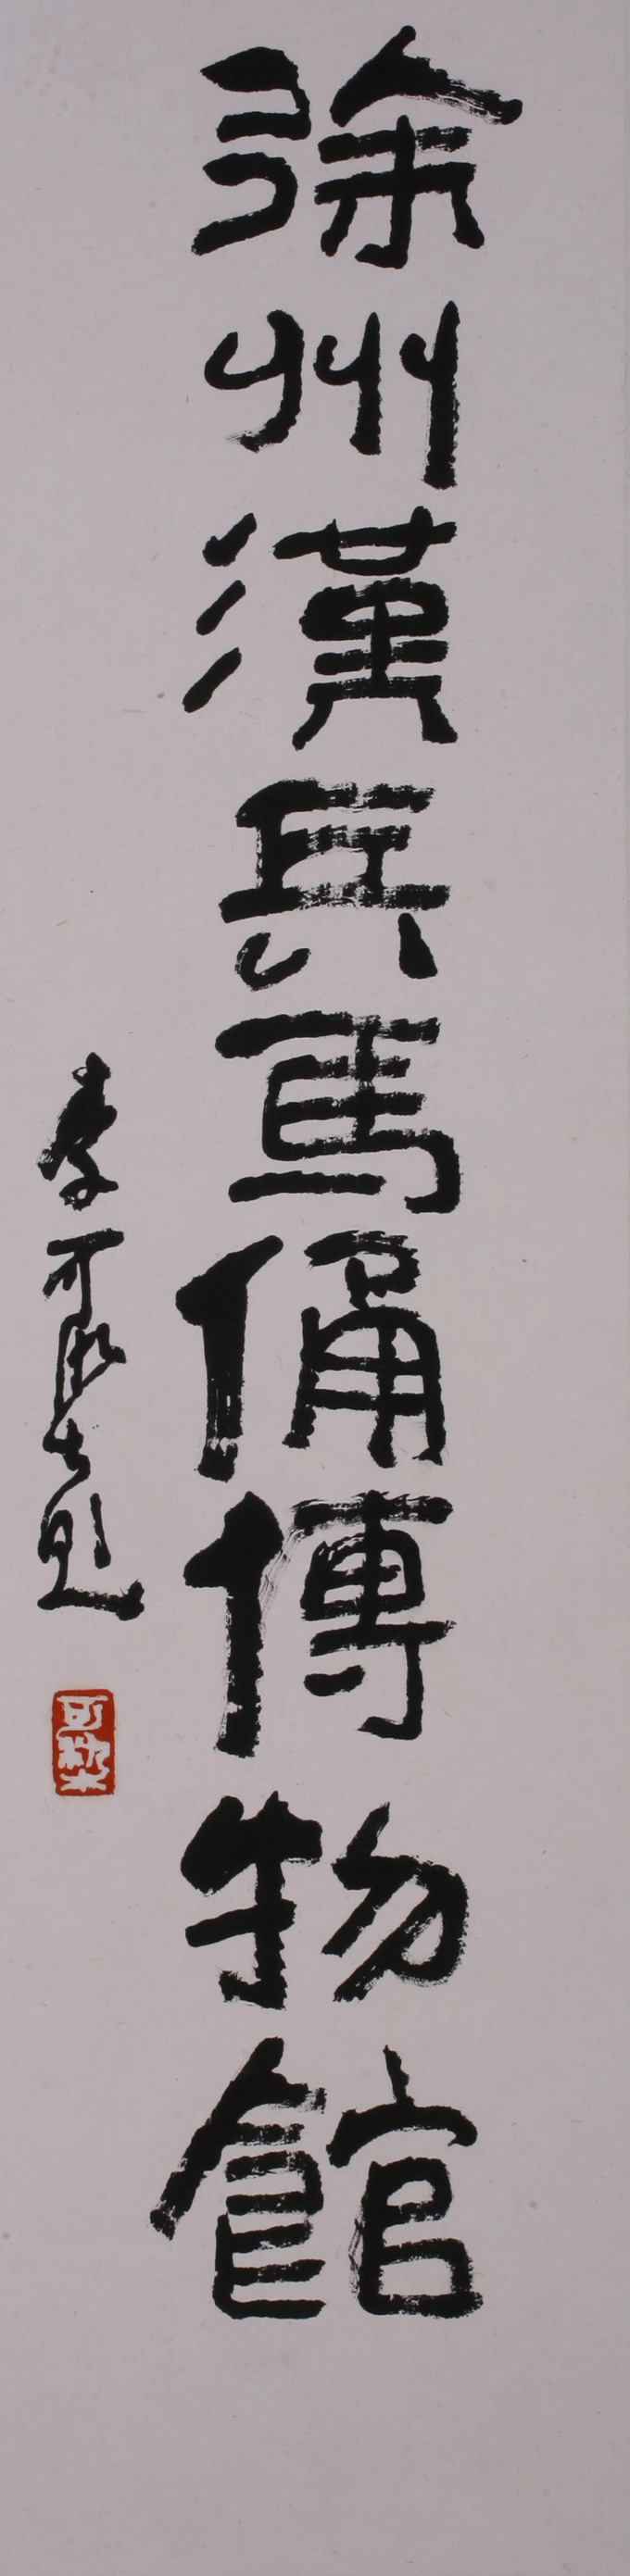 徐州漢兵馬俑博物館
李可染題
可染